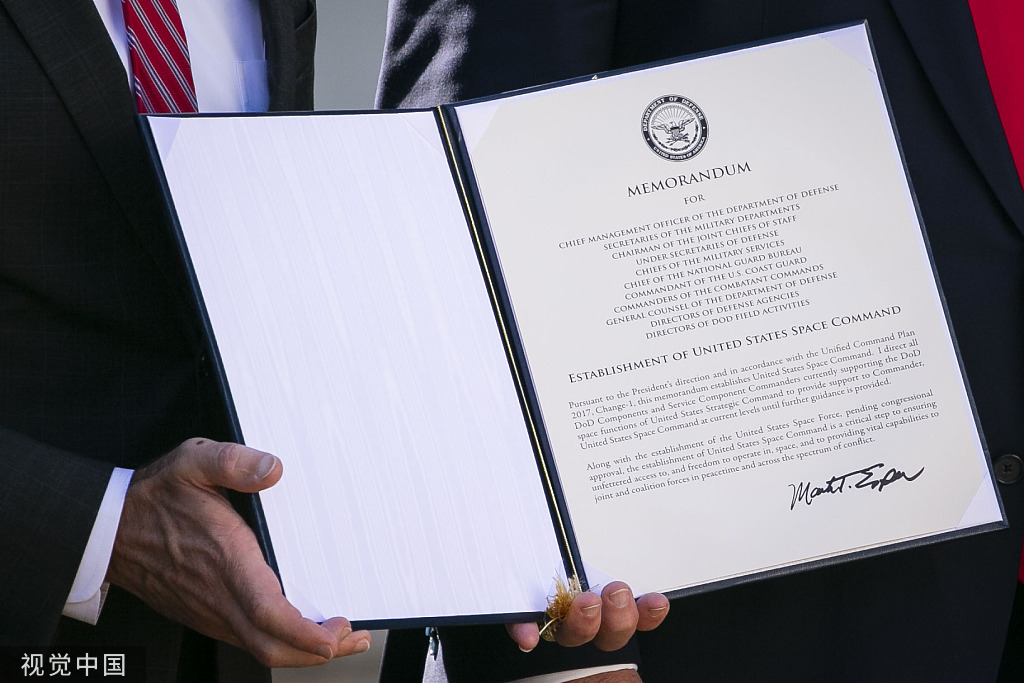 DEPARTMENT OF DEFENSE
UNITED STATES OF AMERICA
MEMORANDUM
FOR
CHIEF MANAGEMENT OFFICER OF THE DEPARTMENT OF DEFENSE
SECRETARIES OF THE MILITARY DEPARTMENTS
CHAIRMAN OF THE JOINT CHIEFS OF STAFF
UNDER SECRETARIES OF DEFENSE
CHIEFS OF THE MILITARY SERVICES
CHIEF OF THE NATIONAL GUARD BUREAU
COMMANDANT OF THE U.S. COAST GUARD
COMMANDERS OF THE COMBATANT COMMANDS
GENERAL COUNSEL OF THE DEPARTMENT OF DEFENSE
DIRECTORS OF DEFENSE AGENCIES
DIRECTORS OF DOD FIELD ACTIVITIES
ESTABLISHMENT OF UNITED STATES SPACE COMMAND
Pursuant to the President's direction and in accordance with the Unified Command Plan
2017, Change-1, this memorandum establishes United States Space Command. I direct all
DoD Components and Service Component Commanders currently supporting the DoD
space functions of United States Strategic Command to provide support to Commander,
United States Space Command at current levels until further guidance is provided.
Along with the establishment of the United States Space Force, pending congressional
approval, the establishment of United States Space Command is a critical step to ensuring
unfettered access to, and freedom to operate in, space, and to providing vital capabilities to
joint and coalition forces in peacetime and across the spectrum of conflict.
Mark T. Esper
视觉中国